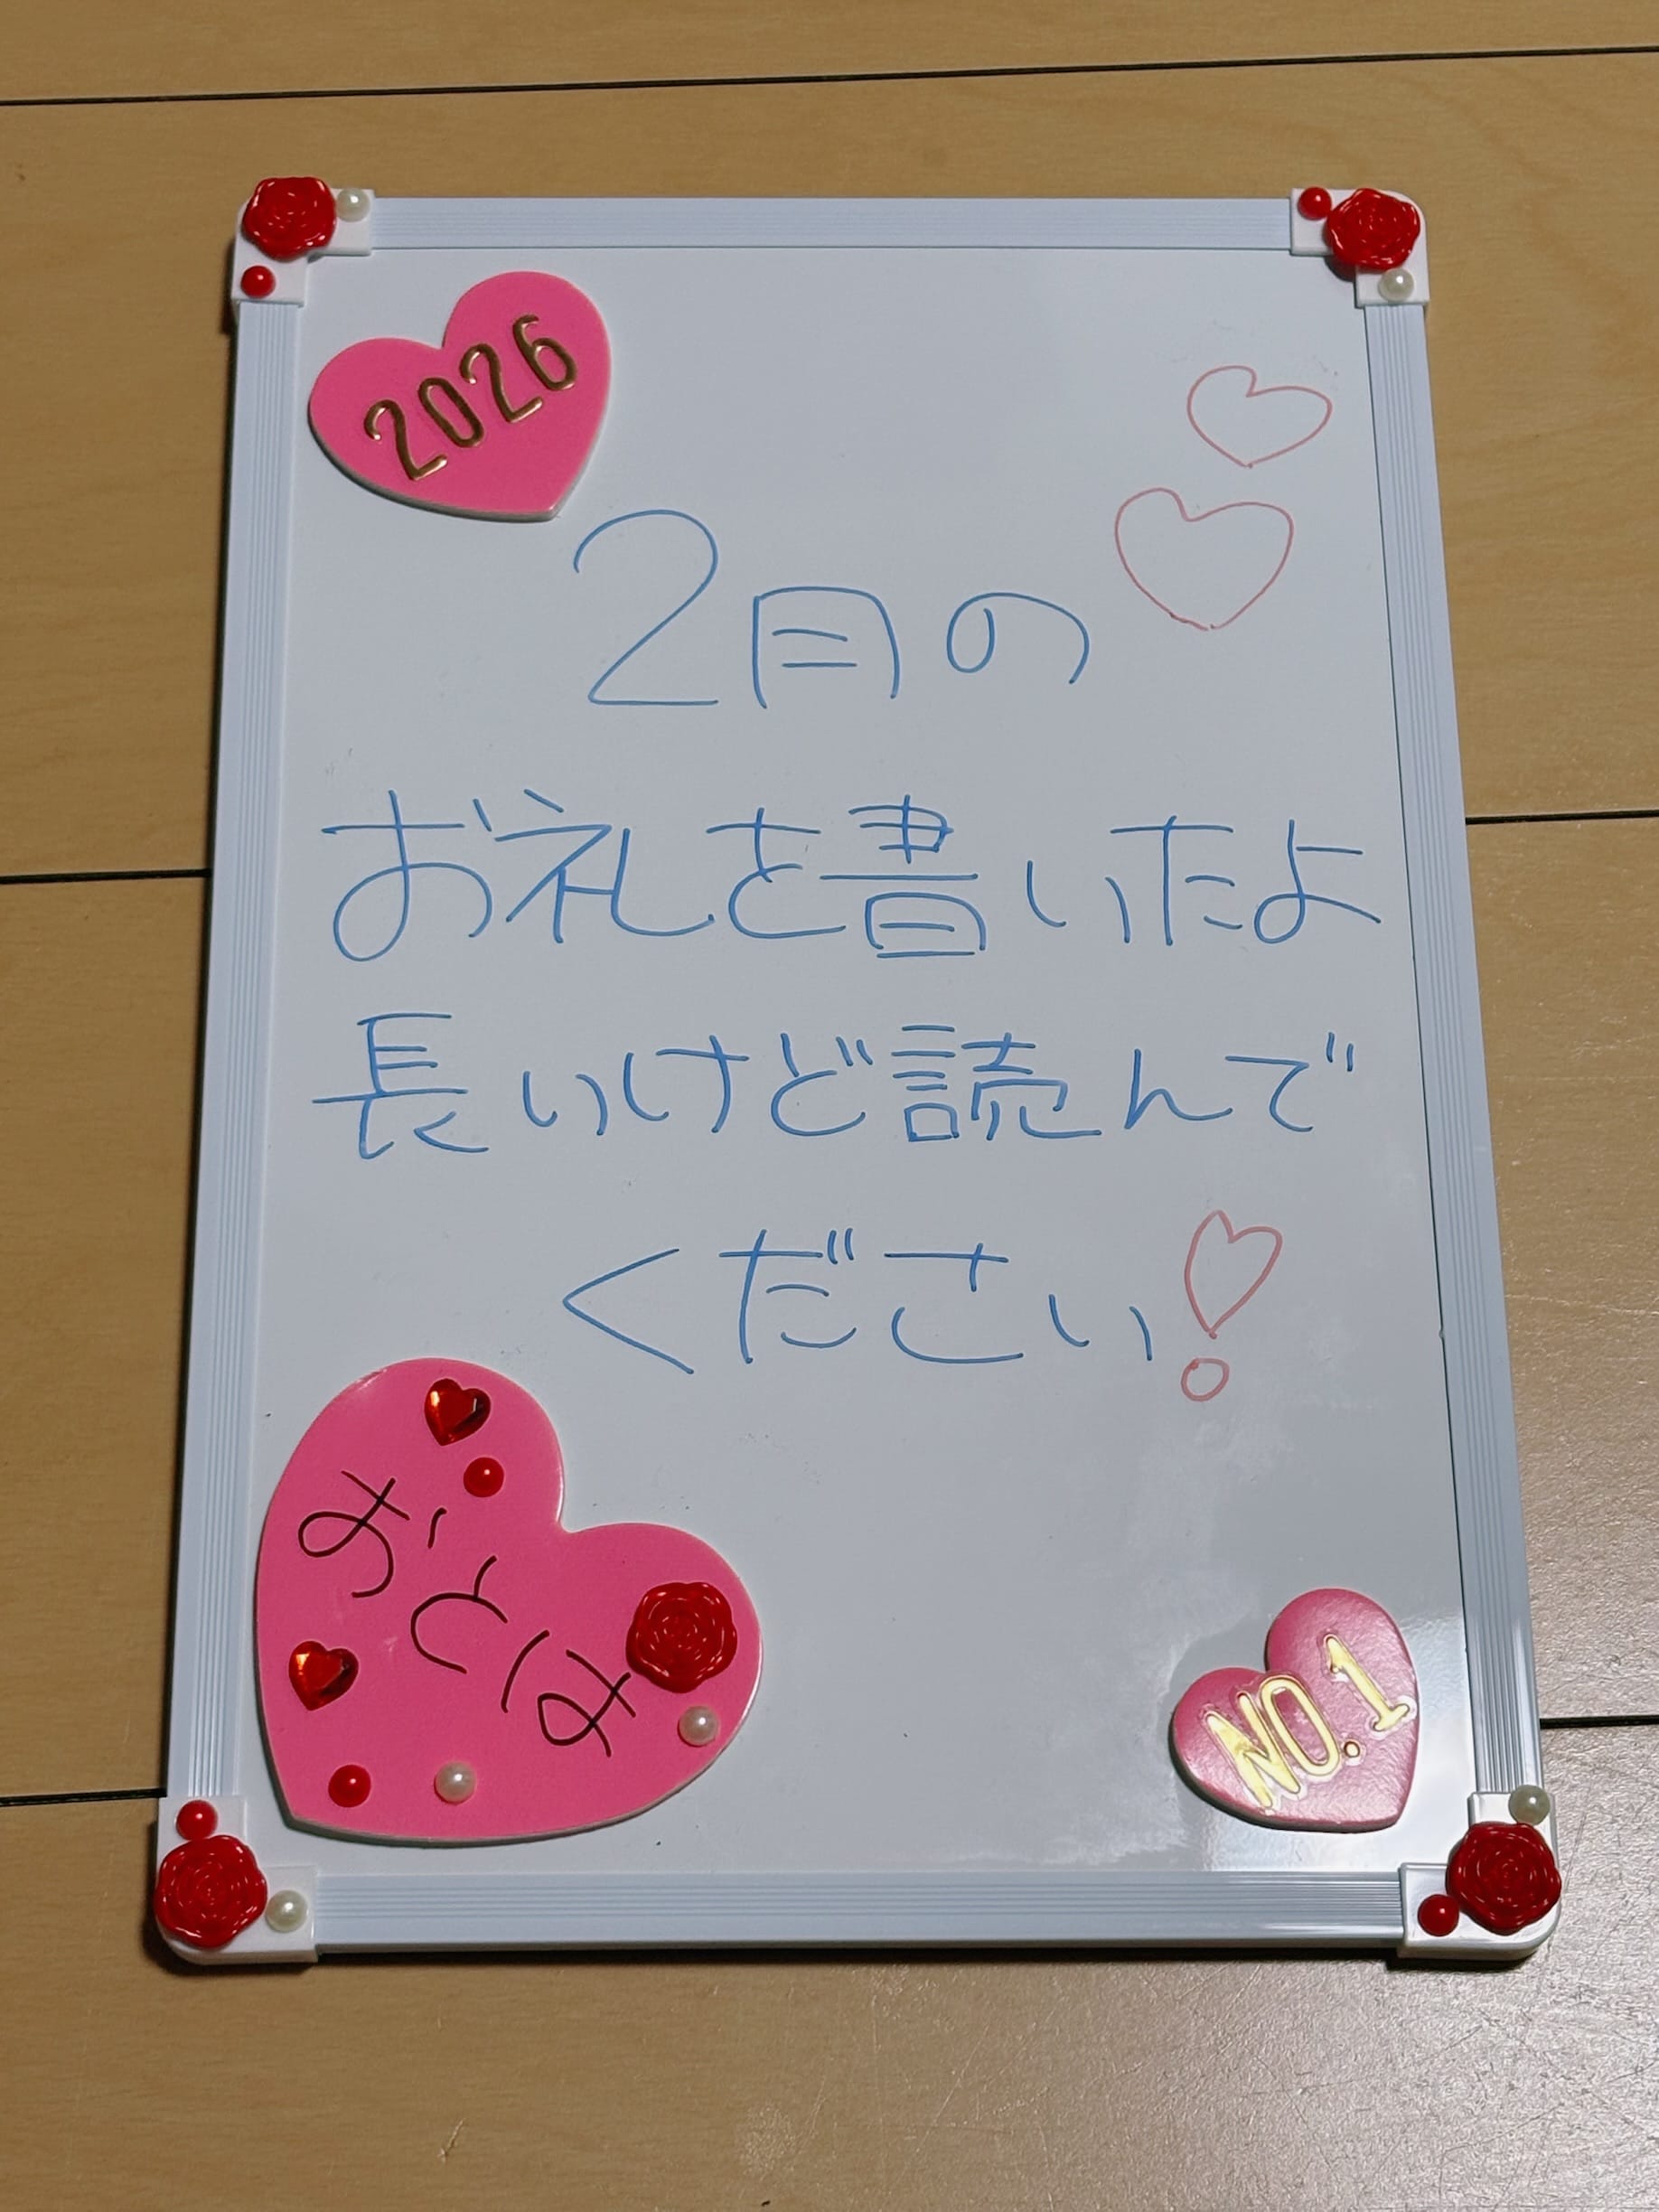 2026
2月の
お礼を書いたよ
長いけど読んで
ください!
おとみ
NO.1